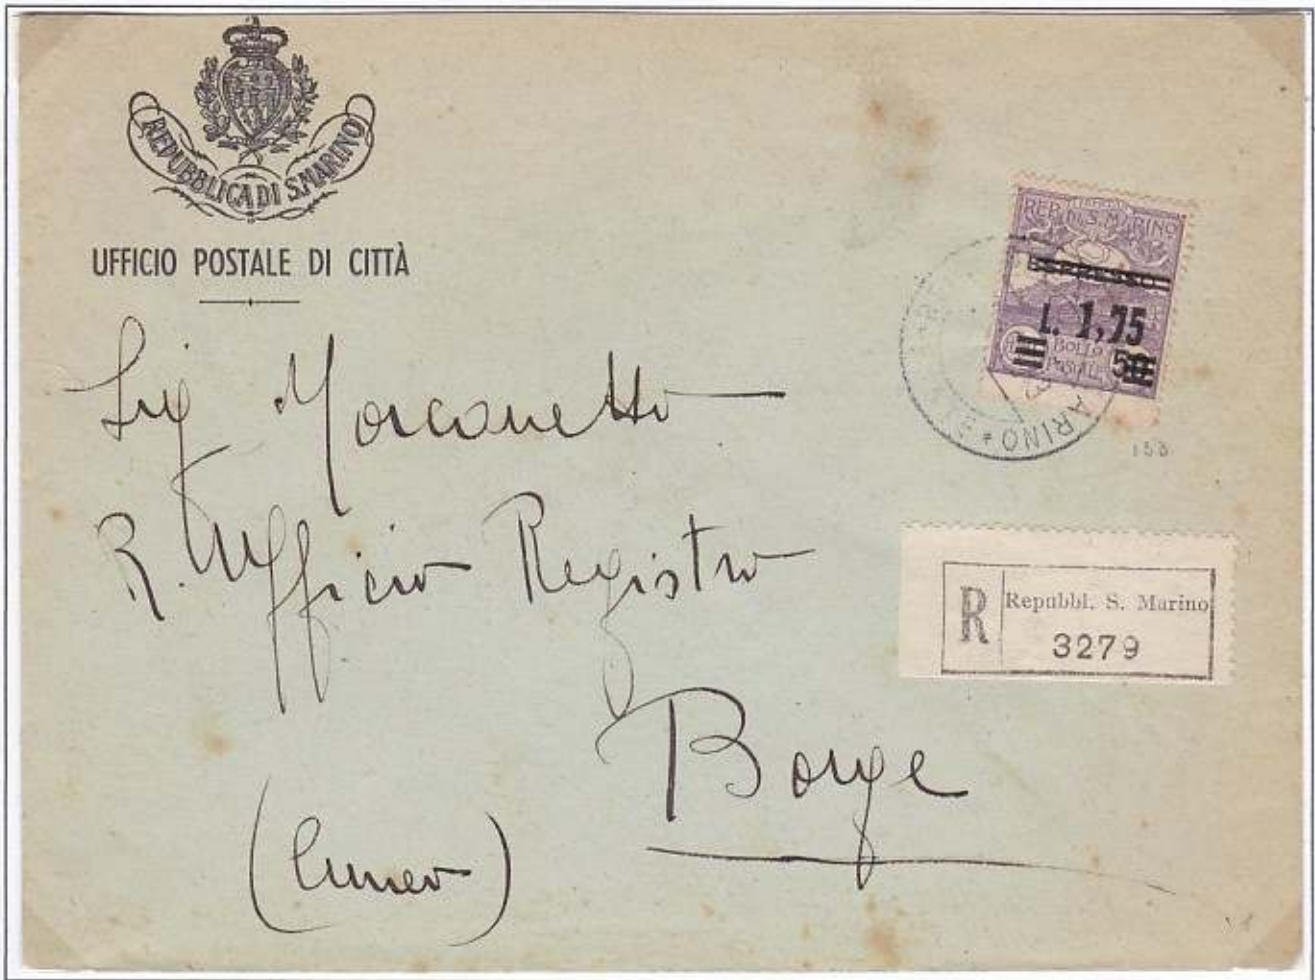 REPUBBLICA DI S. MARINO
UFFICIO POSTALE DI CITTÀ
REP. DI S. MARINO
ESPRESSO
L. 1,75
BOLLO
POSTALE
50
ARINO *
153
Sig Morconetto
R. Ufficio Registro
Borge
(Cuneo)
R
Repubbl. S. Marino
3279